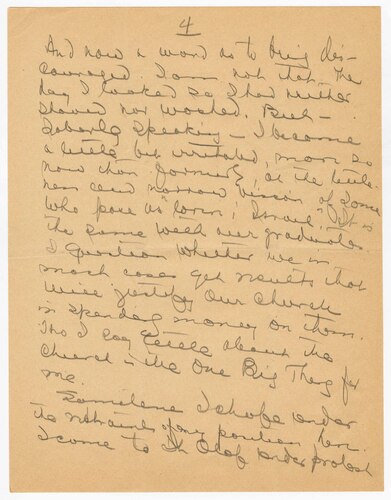 4
And now a word as to being dis-
couraged. I am not that. The
day I looked so I had neither
shaved nor washed. But -
Soberly speaking - I become
a little bit irritated, more so
now than formerly, at the little-
ness and narrow vision of some
who pose as lovers Israel. It is
the same with our graduates.
I question whether we in
most cases get results that
will justify our Church
in spending money on them.
Tho I say little about the
Church is the One Big Thing for
me.
Sometime I chafe under
the restraints of my position here.
I come to St. Olaf under protest